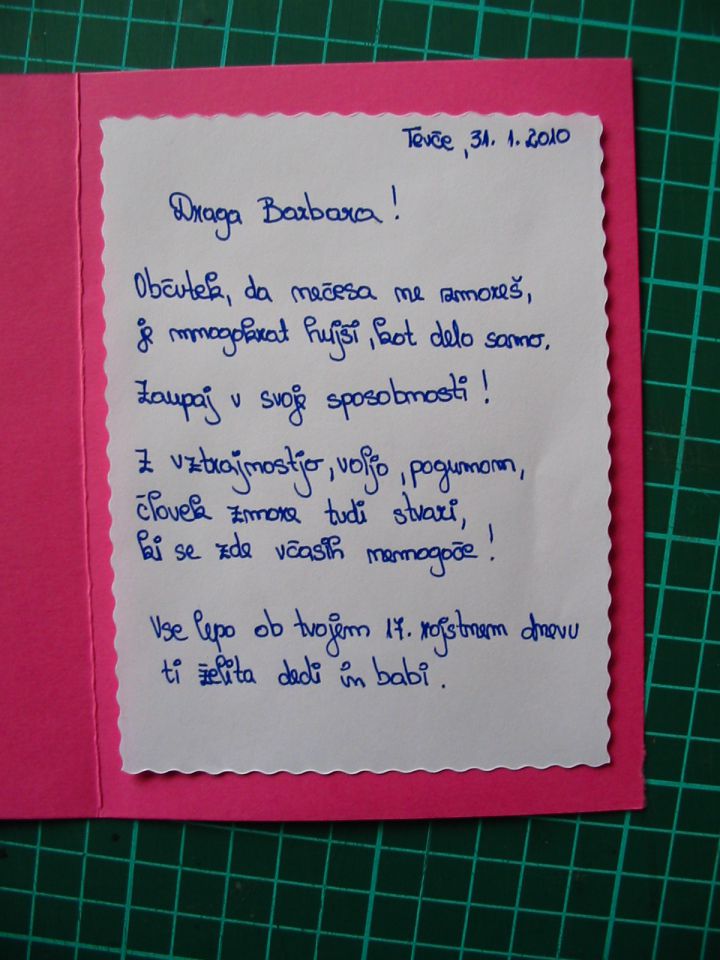 Tevče, 31. 1. 2010
Draga Barbara!
Občutek, da nečesa ne zmoreš,
je mnogokrat hujši, kot delo samo.
Zaupaj v svoje sposobnosti!
Z vztrajnostjo, voljo, pogumom,
človek zmore tudi stvari,
ki se zde včasih nemogoče!
Vse lepo ob tvojem 17. rojstnem dnevu
ti želita dedi in babi.